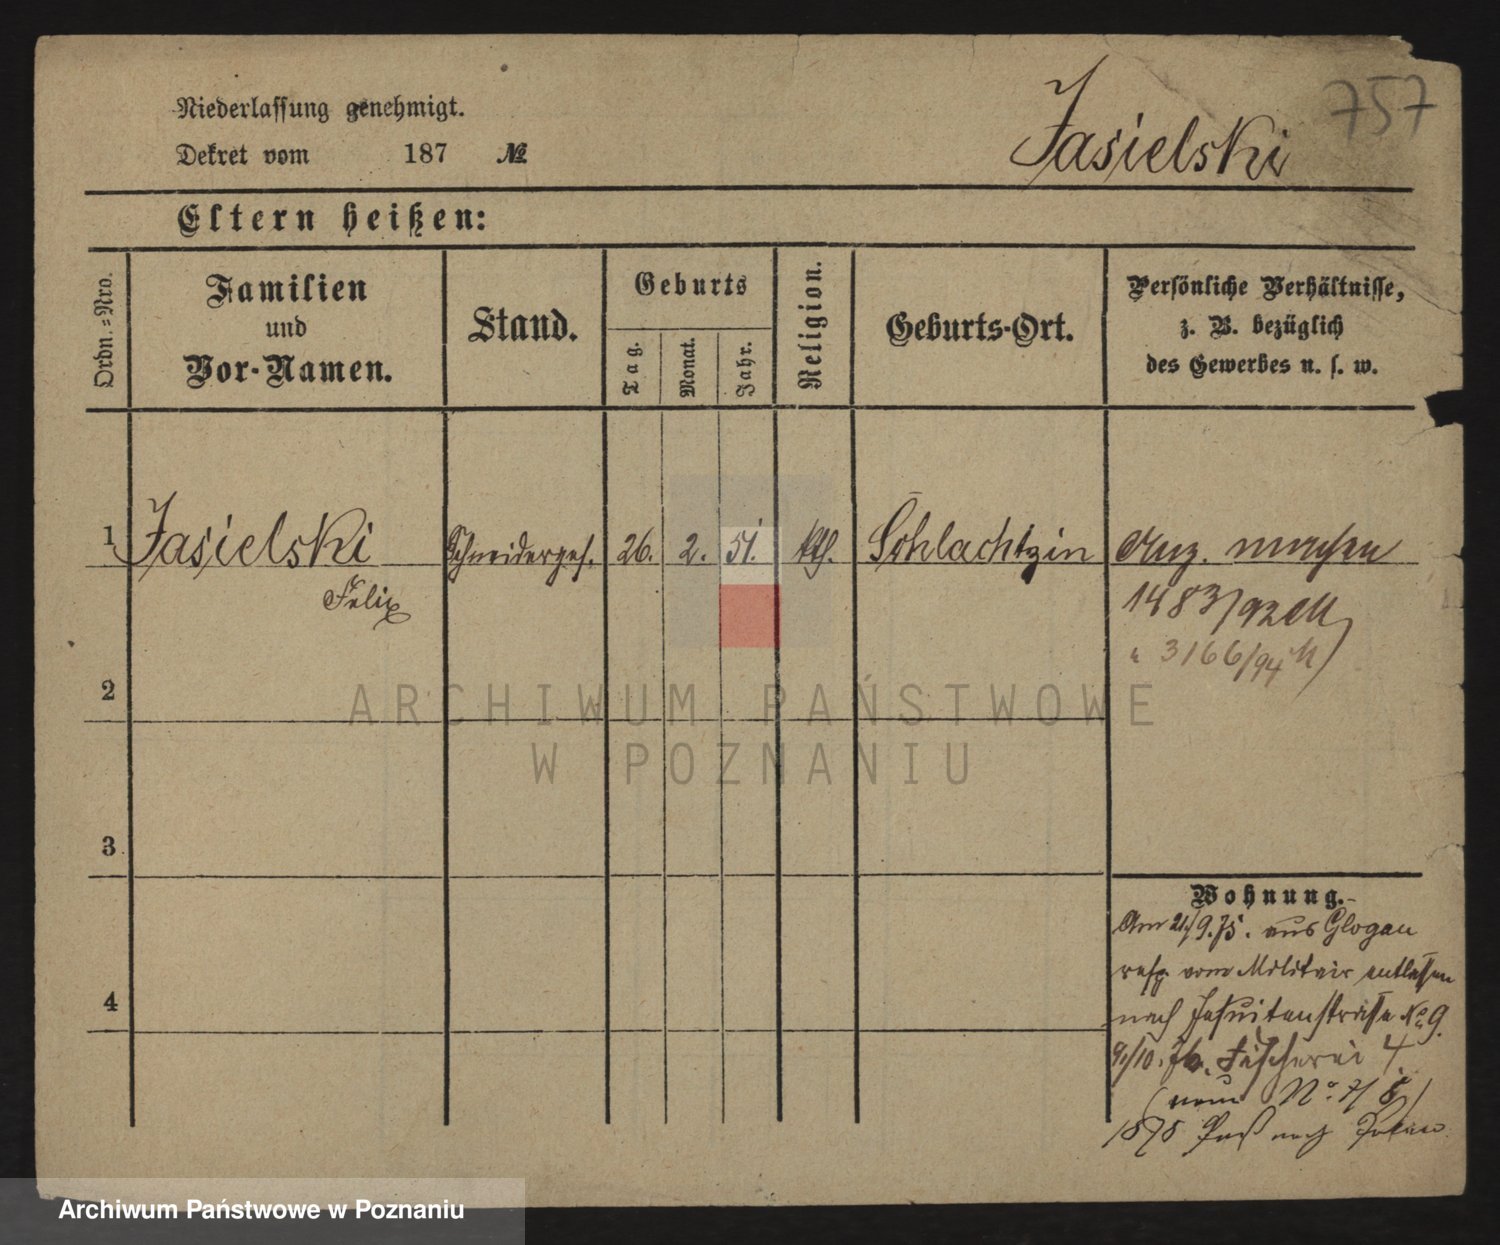 757
Niederlassung genehmigt.
Jasielski
Dekret vom 187 №
Eltern heißen:
Ordn.=Nro.
Familien
und
Vor-Namen.
Stand.
Geburts
Tag.
Monat.
Jahr.
Religion.
Geburts-Ort.
Persönliche Verhältnisse,
z. B. bezüglich
des Gewerbes u. s. w.
1 Jasielski Schneiderges. 26. 2. 51. kth. Schlachtzin
Felix
1483/92 M
3166/94 M
2
ARCHIWUM PAŃSTWOWE
W POZNANIU
3
Wohnung.
Am 21/9.75. aus Glogau
resp. vom Militair entlassen
nach Jesuitenstraße No 9.
9/10. 76. Fischerei 4.
4
1878 Paß nach
Archiwum Państwowe w Poznaniu